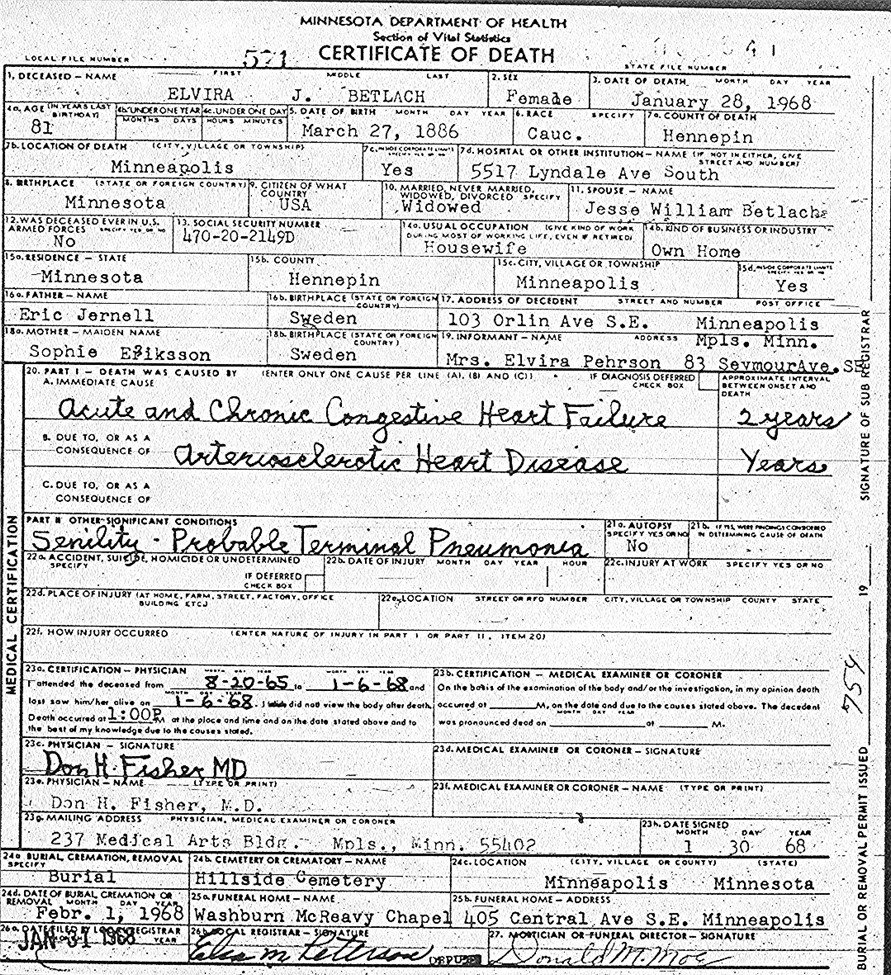 MINNESOTA DEPARTMENT OF HEALTH
Section of Vital Statistics
CERTIFICATE OF DEATH
LOCAL FILE NUMBER 521 STATE FILE NUMBER
1. DECEASED – NAME FIRST MIDDLE LAST 2. SEX 3. DATE OF DEATH MONTH DAY YEAR
ELVIRA J. BETLACH Female January 28, 1968
4a. AGE (IN YEARS LAST BIRTHDAY) 4b. UNDER ONE YEAR 4c. UNDER ONE DAY 5. DATE OF BIRTH MONTH DAY YEAR 6. RACE SPECIFY 7a. COUNTY OF DEATH
MONTHS DAYS HOURS MINUTES
81 March 27, 1886 Cauc. Hennepin
7b. LOCATION OF DEATH (CITY, VILLAGE OR TOWNSHIP) 7c. INSIDE CORPORATE LIMITS SPECIFY YES OR NO 7d. HOSPITAL OR OTHER INSTITUTION – NAME (IF NOT IN EITHER, GIVE STREET AND NUMBER)
Minneapolis Yes 5517 Lyndale Ave South
8. BIRTHPLACE (STATE OR FOREIGN COUNTRY) 9. CITIZEN OF WHAT COUNTRY 10. MARRIED, NEVER MARRIED, WIDOWED, DIVORCED SPECIFY 11. SPOUSE – NAME
Minnesota USA Widowed Jesse William Betlach
12. WAS DECEASED EVER IN U.S. ARMED FORCES SPECIFY YES OR NO 13. SOCIAL SECURITY NUMBER 14a. USUAL OCCUPATION (GIVE KIND OF WORK DURING MOST OF WORKING LIFE, EVEN IF RETIRED) 14b. KIND OF BUSINESS OR INDUSTRY
No 470-20-2149D Housewife Own Home
15a. RESIDENCE – STATE 15b. COUNTY 15c. CITY, VILLAGE OR TOWNSHIP 15d. INSIDE CORPORATE LIMITS SPECIFY YES OR NO
Minnesota Hennepin Minneapolis Yes
16a. FATHER – NAME 16b. BIRTHPLACE (STATE OR FOREIGN COUNTRY) 17. ADDRESS OF DECEDENT STREET AND NUMBER POST OFFICE
Eric Jernell Sweden 103 Orlin Ave S.E. Minneapolis
18a. MOTHER – MAIDEN NAME 18b. BIRTHPLACE (STATE OR FOREIGN COUNTRY) 19. INFORMANT – NAME ADDRESS Mpls. Minn.
Sophie Eriksson Sweden Mrs. Elvira Pehrson 83 SeymourAve.SE
20. PART I – DEATH WAS CAUSED BY (ENTER ONLY ONE CAUSE PER LINE (A), (B) AND (C)) IF DIAGNOSIS DEFERRED CHECK BOX APPROXIMATE INTERVAL BETWEEN ONSET AND DEATH
A. IMMEDIATE CAUSE
Acute and Chronic Congestive Heart Failure 2 years
B. DUE TO, OR AS A CONSEQUENCE OF Arteriosclerotic Heart Disease Years
C. DUE TO, OR AS A CONSEQUENCE OF
PART II OTHER SIGNIFICANT CONDITIONS 21a. AUTOPSY SPECIFY YES OR NO 21b. IF YES, WERE FINDINGS CONSIDERED IN DETERMINING CAUSE OF DEATH
Senility - Probable Terminal Pneumonia No
22a. ACCIDENT, SUICIDE, HOMICIDE OR UNDETERMINED SPECIFY 22b. DATE OF INJURY MONTH DAY YEAR HOUR 22c. INJURY AT WORK SPECIFY YES OR NO
IF DEFERRED CHECK BOX
22d. PLACE OF INJURY (AT HOME, FARM, STREET, FACTORY, OFFICE BUILDING ETC.) 22e. LOCATION STREET OR RFD NUMBER CITY, VILLAGE OR TOWNSHIP COUNTY STATE
22f. HOW INJURY OCCURRED (ENTER NATURE OF INJURY IN PART I OR PART II, ITEM 20)
MEDICAL CERTIFICATION
23a. CERTIFICATION – PHYSICIAN MONTH DAY YEAR MONTH DAY YEAR 23b. CERTIFICATION – MEDICAL EXAMINER OR CORONER
I attended the deceased from 8-20-65 to 1-6-68 and On the basis of the examination of the body and/or the investigation, in my opinion death
last saw him/her alive on 1-6-68. I did not view the body after death. occurred at M., on the date and due to the causes stated above. The decedent
Death occurred at 1:00P M. at the place and time and on the date stated above and to was pronounced dead on at M.
the best of my knowledge due to the causes stated.
23c. PHYSICIAN – SIGNATURE 23d. MEDICAL EXAMINER OR CORONER – SIGNATURE
Don H. Fisher MD
23e. PHYSICIAN – NAME (TYPE OR PRINT) 23f. MEDICAL EXAMINER OR CORONER – NAME (TYPE OR PRINT)
Don H. Fisher, M.D.
23g. MAILING ADDRESS PHYSICIAN, MEDICAL EXAMINER OR CORONER 23h. DATE SIGNED MONTH DAY YEAR
237 Medical Arts Bldg. Mpls., Minn. 55402 1 30 68
24a. BURIAL, CREMATION, REMOVAL SPECIFY 24b. CEMETERY OR CREMATORY – NAME 24c. LOCATION (CITY, VILLAGE OR COUNTY) (STATE)
Burial Hillside Cemetery Minneapolis Minnesota
24d. DATE OF BURIAL, CREMATION OR REMOVAL MONTH DAY YEAR 25a. FUNERAL HOME – NAME 25b. FUNERAL HOME – ADDRESS
Febr. 1, 1968 Washburn McReavy Chapel 405 Central Ave S.E. Minneapolis
26a. DATE FILED BY LOCAL REGISTRAR YEAR 26b. LOCAL REGISTRAR – SIGNATURE 27. MORTICIAN OR FUNERAL DIRECTOR – SIGNATURE
JAN 31 1968 Elsa M Peterson DEPUTY Donald M. Moe
BURIAL OR REMOVAL PERMIT ISSUED 754 19 SIGNATURE OF SUB REGISTRAR